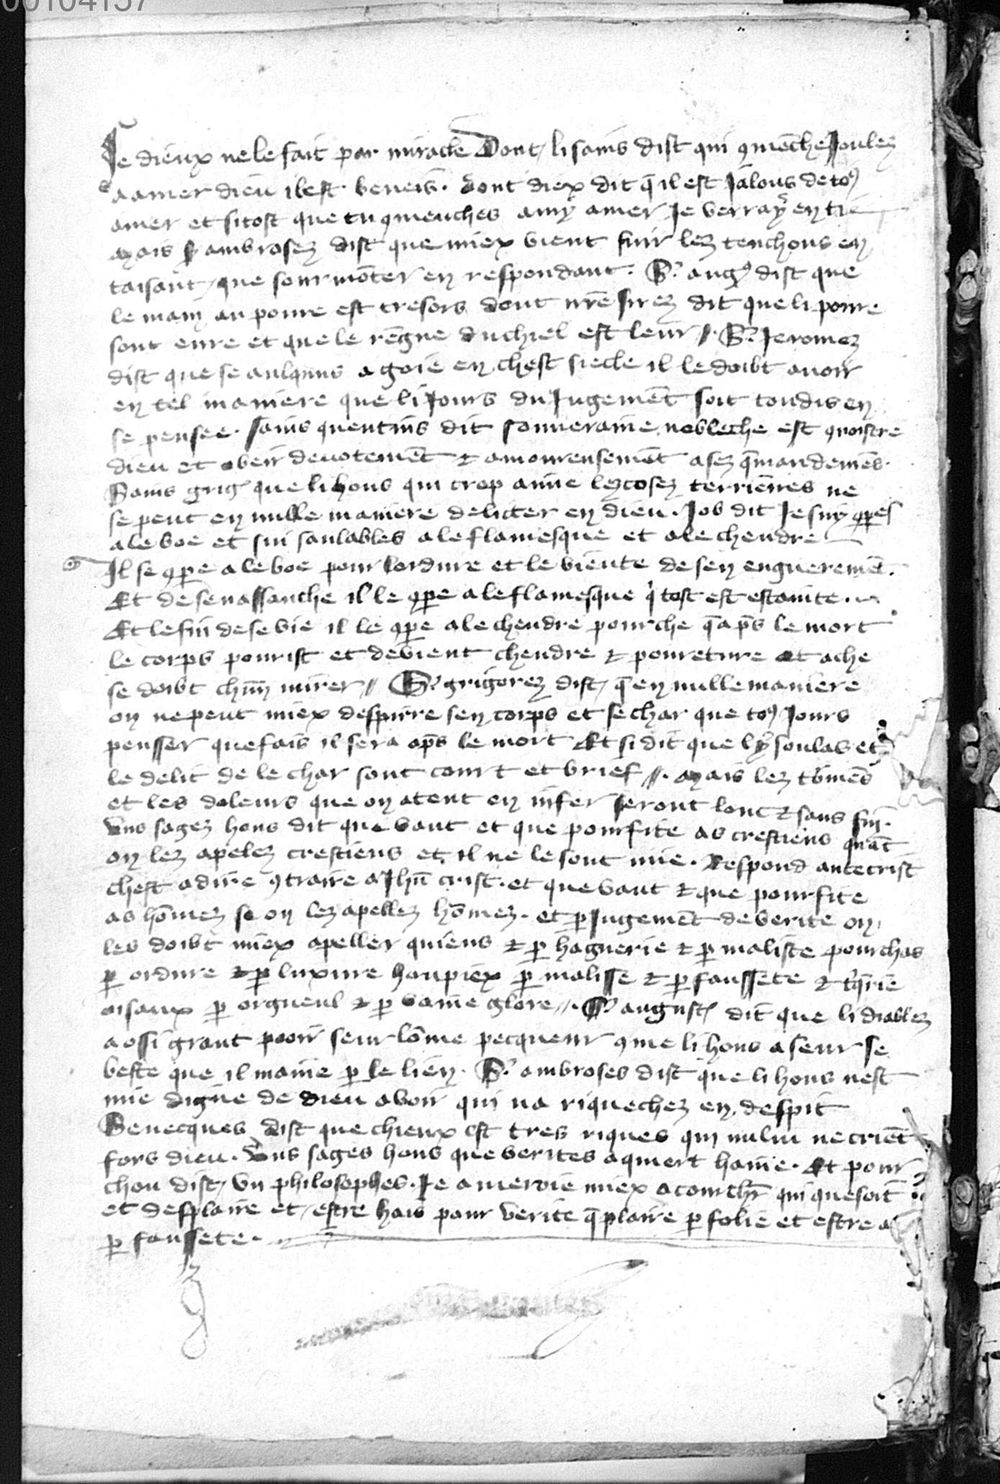 00104157
Se dieux ne le fait par miracle Dont li sains dist qui 9menche Joulez
a amer dieu il est beneis. dont diex dit q̄ il est Jalous de toꝰ
amer et sitost que tu 9menches amy amer Je verray en ti
Mais sꝰ ambrosez dist que miex vient finir lez tenchons en
taisant que sourmōter en respondant. Sꝰ augꝰ dist que
le main au poure est tresors dont nr̄e sirez dit que li poure
sont eure et que le rēgne du chiel est leur //. Sꝰ Jeromez
dist que se aulquns a goie en chest siecle il le doibt avoir
en tel maniere que li Jours du Jugemēt soit toudis en
se pensee. sains quentins dit souveraine nobleche est 9noistre
dieu et obeir devotemēt et amoureusemēt a sez 9mandemēs.
Sains griḡ que li hons qui trop aime lez cosez terriēnes ne
se peut en nulle maniere deliter en dieu. Job dit Je suy 9pes
a le boe et sui sanlables a le flamesque et a le chendre
Il se 9pe a le boe pour lordure et le viente de sen engueremēt.
Et de senassanche il le 9pe a le flamesque q̄ tost est estainte.
Et le fin de se vie il le 9pe a le chendre pour che q̄ ap̄s le mort
le corps pourist et devient chendre et poureture et a che
se doibt chūn mirer // Sꝰ grigorez dist q̄ en nulle maniere
on ne peut miex despirre sen corps et se char que toꝰ Jours
pensser que fais il sera ap̄s le mort Et si dit que ly soulas et
le delit de le char sont court et brief //. Mais lez tōmēs
et les doleurs que on atent en infer seront lonc et sans fin.
Uns sagez hons dit que vaut et que pourfite as crestiens quāt
on lez apelez crestiens et il ne le sont mie. Respond antecrist
chest a dire 9traire a Jhū crist. et que vaut et que pourfite
as hōmez se on lez apellez hōmez. et p̄ Jugemēt de verite on
les doibt miex apeller quiens et p̄ haguerie et p̄ maliste pourchas
p̄ ordure et p̄ luxure houpiex p̄ malisse et p̄ faussete et
oisaux p̄ orgueul et p̄ vaine glore //. Sꝰ augustꝰ dit que li diablez
a ossi grant pooir seur lōme pecqueur 9me li hons a seur se
beste que il maine p̄ le lien. Sꝰ ambroses dist que li hons nest
mie digne de dieu avoir qui na riquechez en despit
Senecques dist que chieux est tres riques qui nului ne crient
fors dieu. Uns sages hons que verites aquiert haine. Et pour
chou dist un philosophes. Je ameroie miex a courchr̄ qui que soit
et desplaire et estre hais pour verite q̄ plaire p̄ folie et estre a
p̄ faussete.